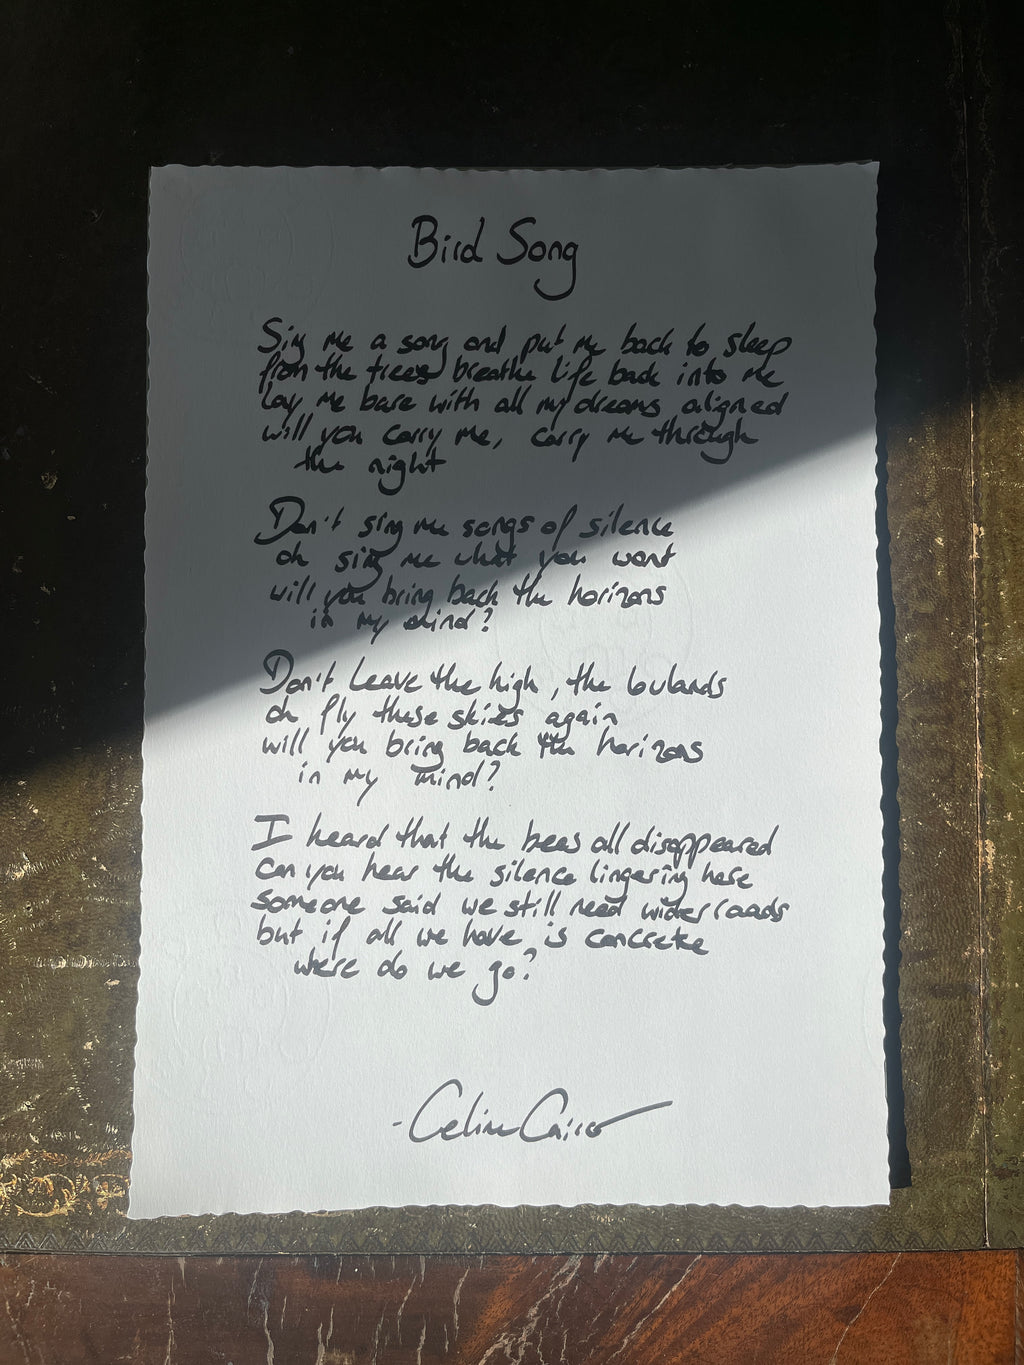 Bird Song
Sing me a song and put me back to sleep
from the trees breathe life back into me
lay me bare with all my dreams aligned
will you carry me, carry me through
the night
Don't sing me songs of silence
oh sing me what you want
will you bring back the horizons
in my mind?
Don't leave the high, the lowlands
oh fly these skies again
will you bring back the horizons
in my mind?
I heard that the bees all disappeared
can you hear the silence lingering here
someone said we still need wider roads
but if all we have is concrete
where do we go?
- Celine Cairo